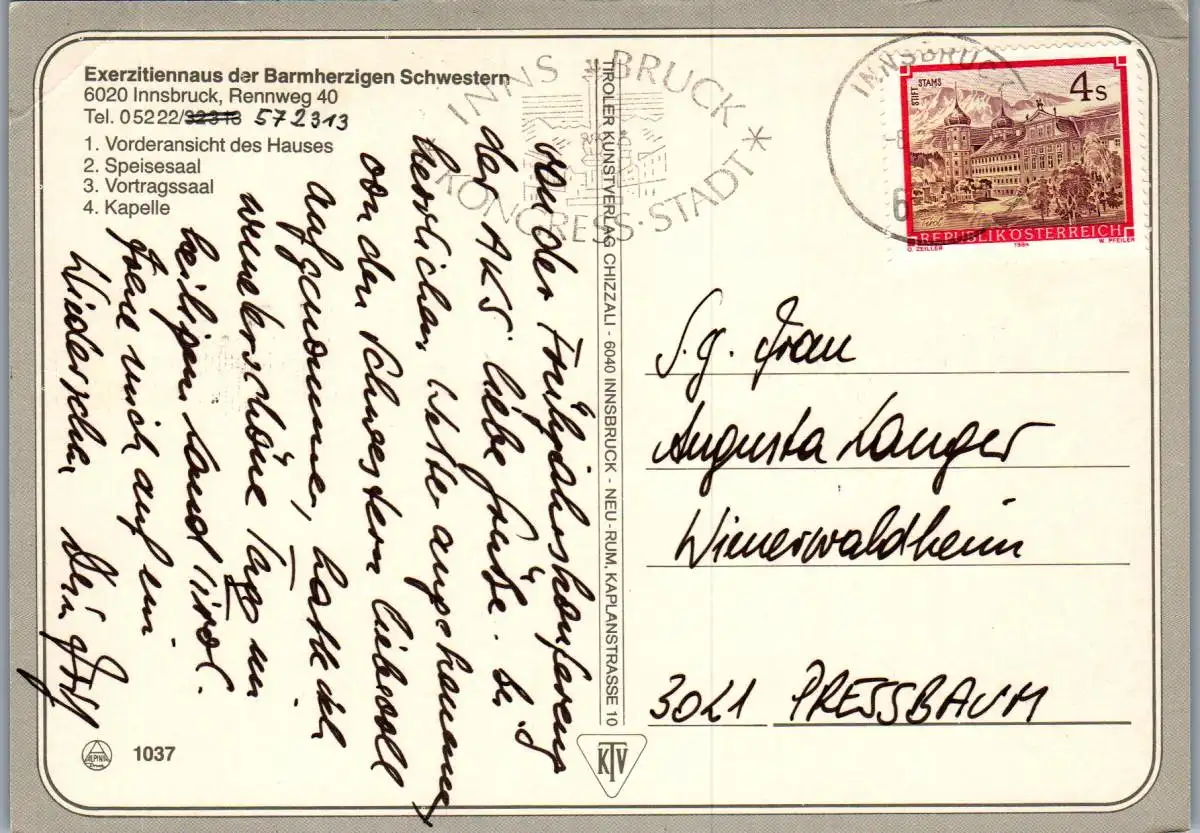 Exerzitiennaus der Barmherzigen Schwestern
6020 Innsbruck, Rennweg 40
Tel. 05222/32313 572313
1. Vorderansicht des Hauses
2. Speisesaal
3. Vortragssaal
4. Kapelle
INNSBRUCK
KONGRESS·STADT
INNSBRUCK
STIFT STAMS
4 S
REPUBLIK ÖSTERREICH
O. ZEILLER 1984 W. PFEILER
TIROLER KUNSTVERLAG CHIZZALI - 6040 INNSBRUCK - NEU-RUM, KAPLANSTRASSE 10
Von der Frühjahrskonferenz
der AKS liebe Grüße. Bei
herrlichem Wetter angekommen
von den Schwestern liebevoll
aufgenommen, hatte ich
wunderschöne Tage im
heiligen Land Tirol.
Freue mich auf ein
Wiedersehen Dein
S. g. Frau
Augusta Langer
Wienerwaldheim
3021 PRESSBAUM
ALPINA
Druck
1037
KTV